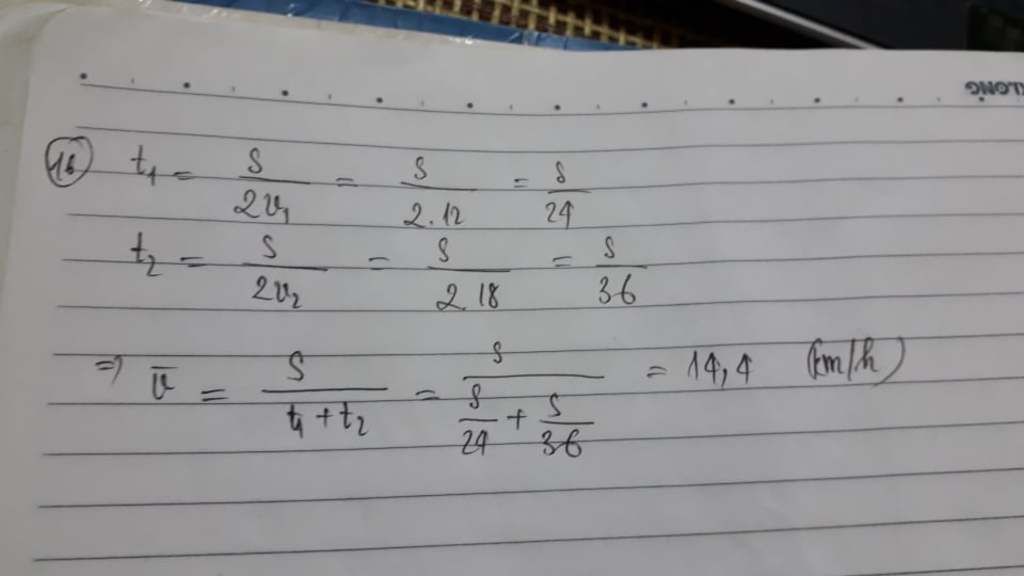 KLONG
16 t₁ = S/2v₁ = S/2.12 = S/24
t₂ = S/2v₂ = S/2.18 = S/36
=> v̄ = S/(t₁ + t₂) = S/(S/24 + S/36) = 14,4 (km/h)